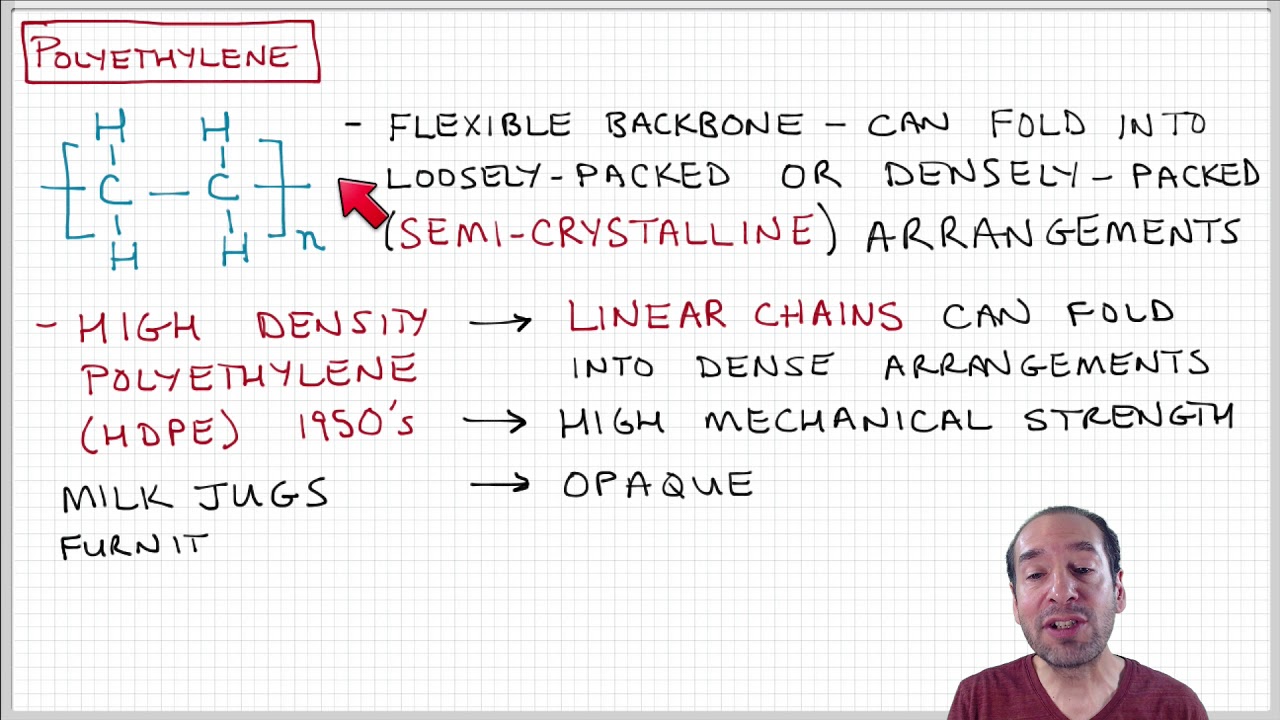 POLYETHYLENE
H H
[ C — C ] n
H H
- FLEXIBLE BACKBONE - CAN FOLD INTO
LOOSELY-PACKED OR DENSELY-PACKED
(SEMI-CRYSTALLINE) ARRANGEMENTS
- HIGH DENSITY → LINEAR CHAINS CAN FOLD
POLYETHYLENE INTO DENSE ARRANGEMENTS
(HDPE) 1950's → HIGH MECHANICAL STRENGTH
MILK JUGS → OPAQUE
FURNIT